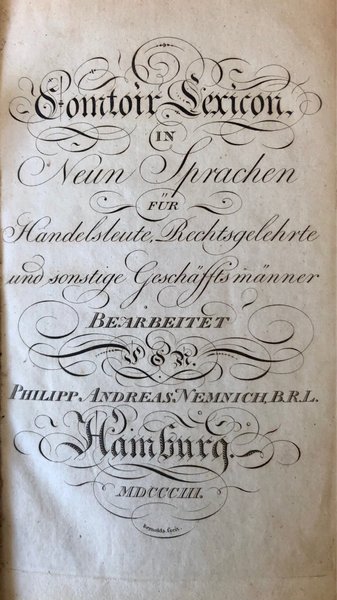 Comtoir Lexicon,
IN
Neun Sprachen
FÜR
Handelsleute, Rechtsgelehrte
und sonstige Geschäfftsmänner
BEARBEITET
VON
PHILIPP ANDREAS NEMNICH, B.R.L.
Hamburg.
MDCCCIII.